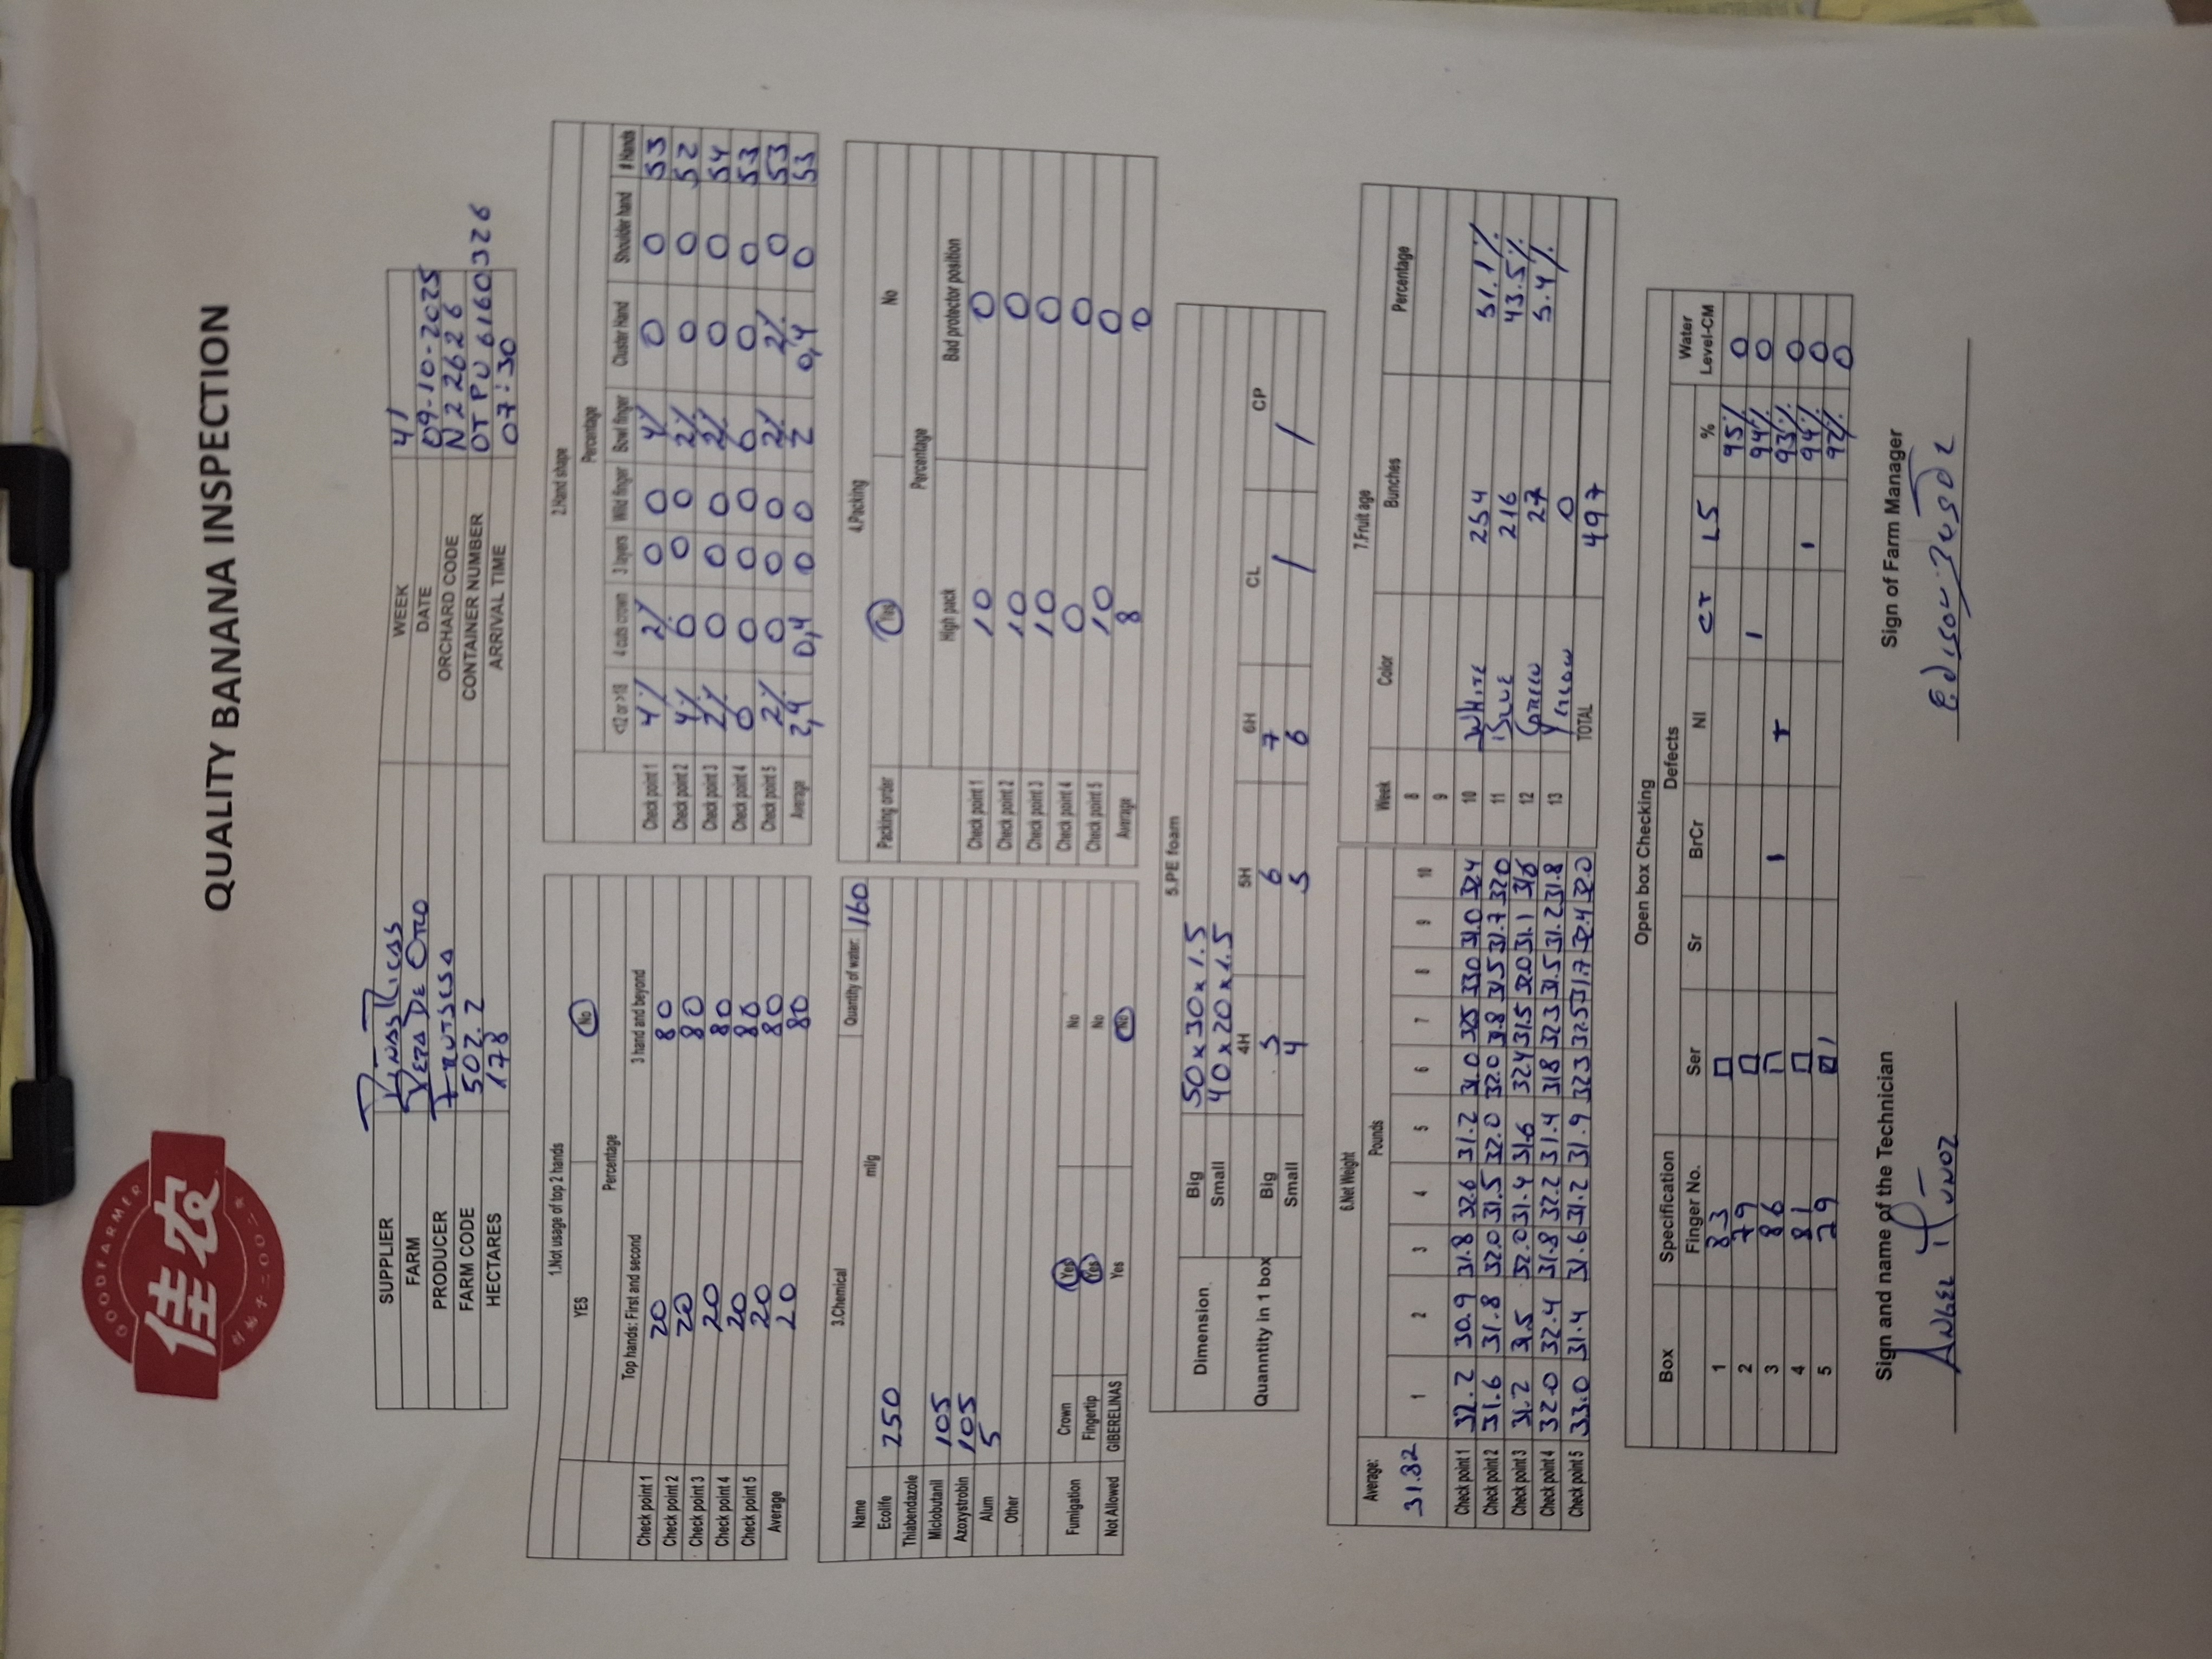 GOODFARMER
佳农
创始于二〇〇二年
QUALITY BANANA INSPECTION
SUPPLIER Piñas Ricas WEEK 41
FARM Veta De Oro DATE 09-10-2025
PRODUCER Frutsesa ORCHARD CODE N22626
FARM CODE 502.2 CONTAINER NUMBER OTPU 6160326
HECTARES 178 ARRIVAL TIME 07:30
1.Not usage of top 2 hands
YES No
Percentage
Top hands: First and second 3 hand and beyond
Check point 1 20 80
Check point 2 20 80
Check point 3 20 80
Check point 4 20 80
Check point 5 20 80
Average 20 80
2.Hand shape
Percentage
<12 or >18 4 cuts crown 3 layers Wild finger Bowl finger Cluster Hand Shoulder hand # Hands
Check point 1 4% 2% 0 0 4% 0 0 53
Check point 2 4% 0 0 0 2% 0 0 52
Check point 3 2% 0 0 0 2% 0 0 54
Check point 4 0 0 0 0 0 0 0 53
Check point 5 2% 0 0 0 2% 2% 0 53
Average 2,4 0,4 0 0 2 0,4 0 53
3.Chemical Quantity of water: 160
Name ml/g
Ecolife 250
Thiabendazole
Miclobutanil 105
Azoxystrobin 105
Alum 5
Other
Fumigation Crown Yes No
Fingertip Yes No
Not Allowed GIBERELINAS Yes No
4.Packing
Packing order Yes No
Percentage
High pack Bad protector position
Check point 1 10 0
Check point 2 10 0
Check point 3 10 0
Check point 4 0 0
Check point 5 10 0
Average 8 0
5.PE foam
Dimension Big 50 x 30 x 1.5
Small 40 x 20 x 1.5
Quanntity in 1 box 4H 5H 6H CL CP
Big 5 6 7 /  /
Small 4 5 6
6.Net Weight
Average: Pounds
31.82 1 2 3 4 5 6 7 8 9 10
Check point 1 32.2 30.9 31.8 32.6 31.2 31.0 325 330 31.0 324
Check point 2 31.6 31.8 32.0 31.5 32.0 32.0 31.8 31.5 31.7 320
Check point 3 31.2 31.5 32.0 31.4 31.6 324 31.5 32.0 31.1 316
Check point 4 32.0 32.4 31.8 32.2 31.4 318 323 31.5 31.2 31.8
Check point 5 33.0 31.4 31.6 31.2 31.9 323 32.5 31.7 32.4 32.0
7.Fruit age
Week Color Bunches Percentage
8
9
10 White 254 51.1%
11 Blue 216 43.5%
12 Green 27 5.4%
13 Yellow 0
TOTAL 497
Open box Checking
Box Specification Defects Water
Finger No. Ser Sr BrCr NI CT LS % Level-CM
1 83 95% 0
2 79 1 94% 0
3 86 1 + 93% 0
4 81 1 94% 0
5 79 1 92% 0
Sign and name of the Technician Sign of Farm Manager
Angel Muñoz Edison